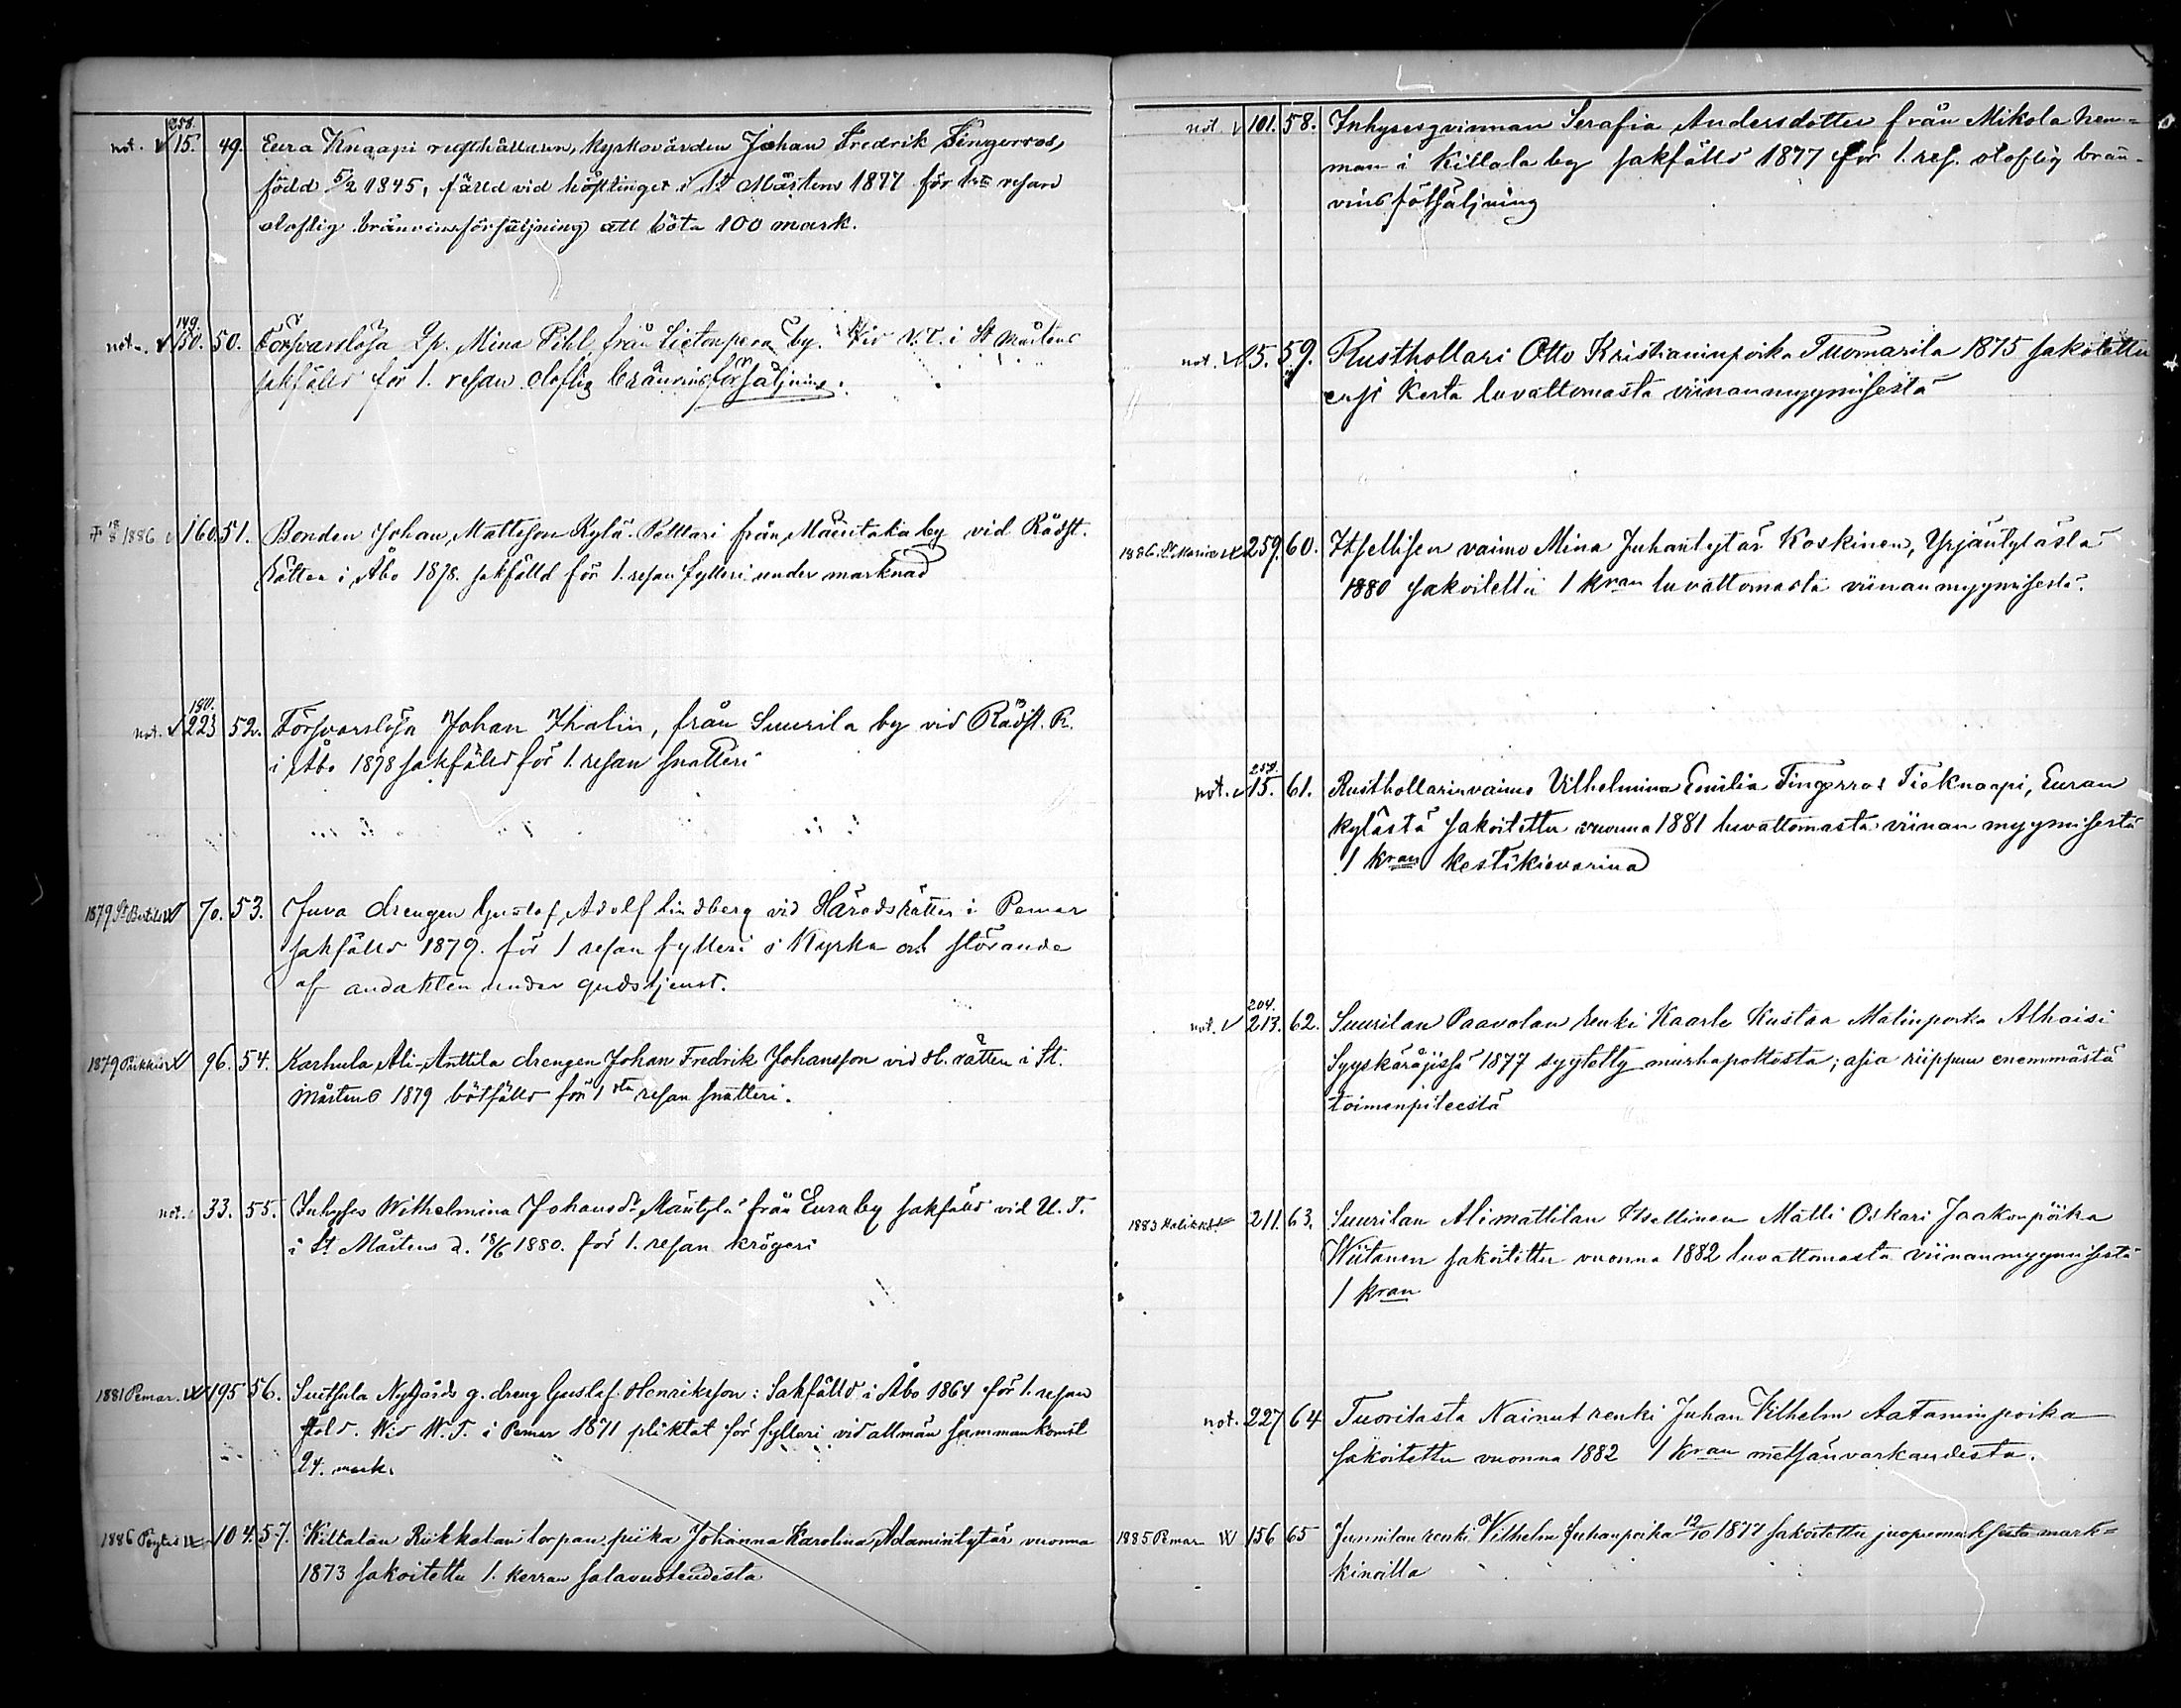 258.
not. v 15. 49. Eura Knaapi rusthållaren, kyrkovärden Johan Fredrik Fingerros,
född 5/2 1845, fälld vid häftinget i St Mårtens 1877 för 1sta resan
olaflig bränvinsförsäljning att böta 100 mark.
149.
not. v 150. 50. Försvarslösa Qp. Mina Pihl från Lietonperä by. Vid V. T. i St Mårtens
sakfälld för 1. resan olaflig bränvinsförsäljning.
† 18/8 1886 v 160. 51. Bonden Johan Mattsson Kylä-Palttari från Mäentaka by vid Rådst.
Rätten i Åbo 1878. sakfälld för 1. resan fylleri under marknad
190.
not. v 223 52. Försvarslösa Johan Thalin, från Suurila by vid Rådst. R.
i Åbo 1878 sakfälld för 1. resan snatteri
1879 St Bertils 70. 53. Juva drengen Gustaf Adolf Lindberg vid Häradsrätten i Pemar
sakfälld 1879. för 1 resan fylleri i Kyrka och störande
af andakten under gudstjenst.
1879 Piikkis 96. 54. Karhula Ali-Anttila drengen Johan Fredrik Johansson vid H. rätten i St.
Mårtens 1879 bötfälld för 1sta resan snatteri.
not. 33. 55. Inhyses Wilhelmina Johansdr Mäntylä från Euraby sakfälld vid U. T.
i St Mårtens d. 18/6 1880. för 1. resan krögeri
1881 Pemar. 195 56. Nygårds g. dreng Gustaf Henriksson: Sakfälld i Åbo 1864 för 1. resan
stöld. Wid W. T. i Pemar 1871 pliktat för fylleri vid allmän sammankomst
24. mark.
1886 Pöytis 104. 57. Killalan Riikkalan torpan piika Johanna Karolina Adamintytär vuonna
1873 sakoitettu 1. kerran salavuoteudesta
not. v 101. 58. Inhysesqvinnan Serafia Andersdotter från Mikola hem-
man i Killala by sakfälld 1877 för 1. res. olaflig brän-
vinsförsäljning
not. v 15. 59. Rusthollari Otto Kristianinpoika Tuomarila 1875 sakotettu
ensi kerta luvattomasta viinanmyymisestä
1886. St. Karins 259. 60. Itsellisen vaimo Mina Juhantytär Koskinen, Yrjäntylästä
1880 sakoitettu 1 kran luvattomasta viinanmyymisestä.
258.
not. v 15. 61. Rusthollarinvaimo Vilhelmina Emilia Fingerros Tieknaapi, Euran
kylästä sakoitettu vuonna 1881 luvattomasta viinan myymisestä
1 kran kestikievarina
204.
not. v 213. 62. Suurilan Paavolan renki Kaarle Kustaa Matinpoika Alhaisi
Syyskäräjissä 1877 syytetty murhapoltosta; asia riippuu enemmästä
toimenpiteestä
1883 Halikko 211. 63. Suurilan Alimattilan Itsellinen Matti Oskari Jaakonpoika
Wiitanen sakoitettu vuonna 1882 luvattomasta viinanmyymisestä
1 kran
not. 227 64 Tuoritasta Nainut renki Juhan Vilhelm Aataminpoika
sakoitettu vuonna 1882 1 kran metsänvarkaudesta.
1885 Pemar 156 65 Junnilan renki Vilhelm Juhanpoika 12/10 1877 sakoitettu juopumuksesta mark-
kinoilla